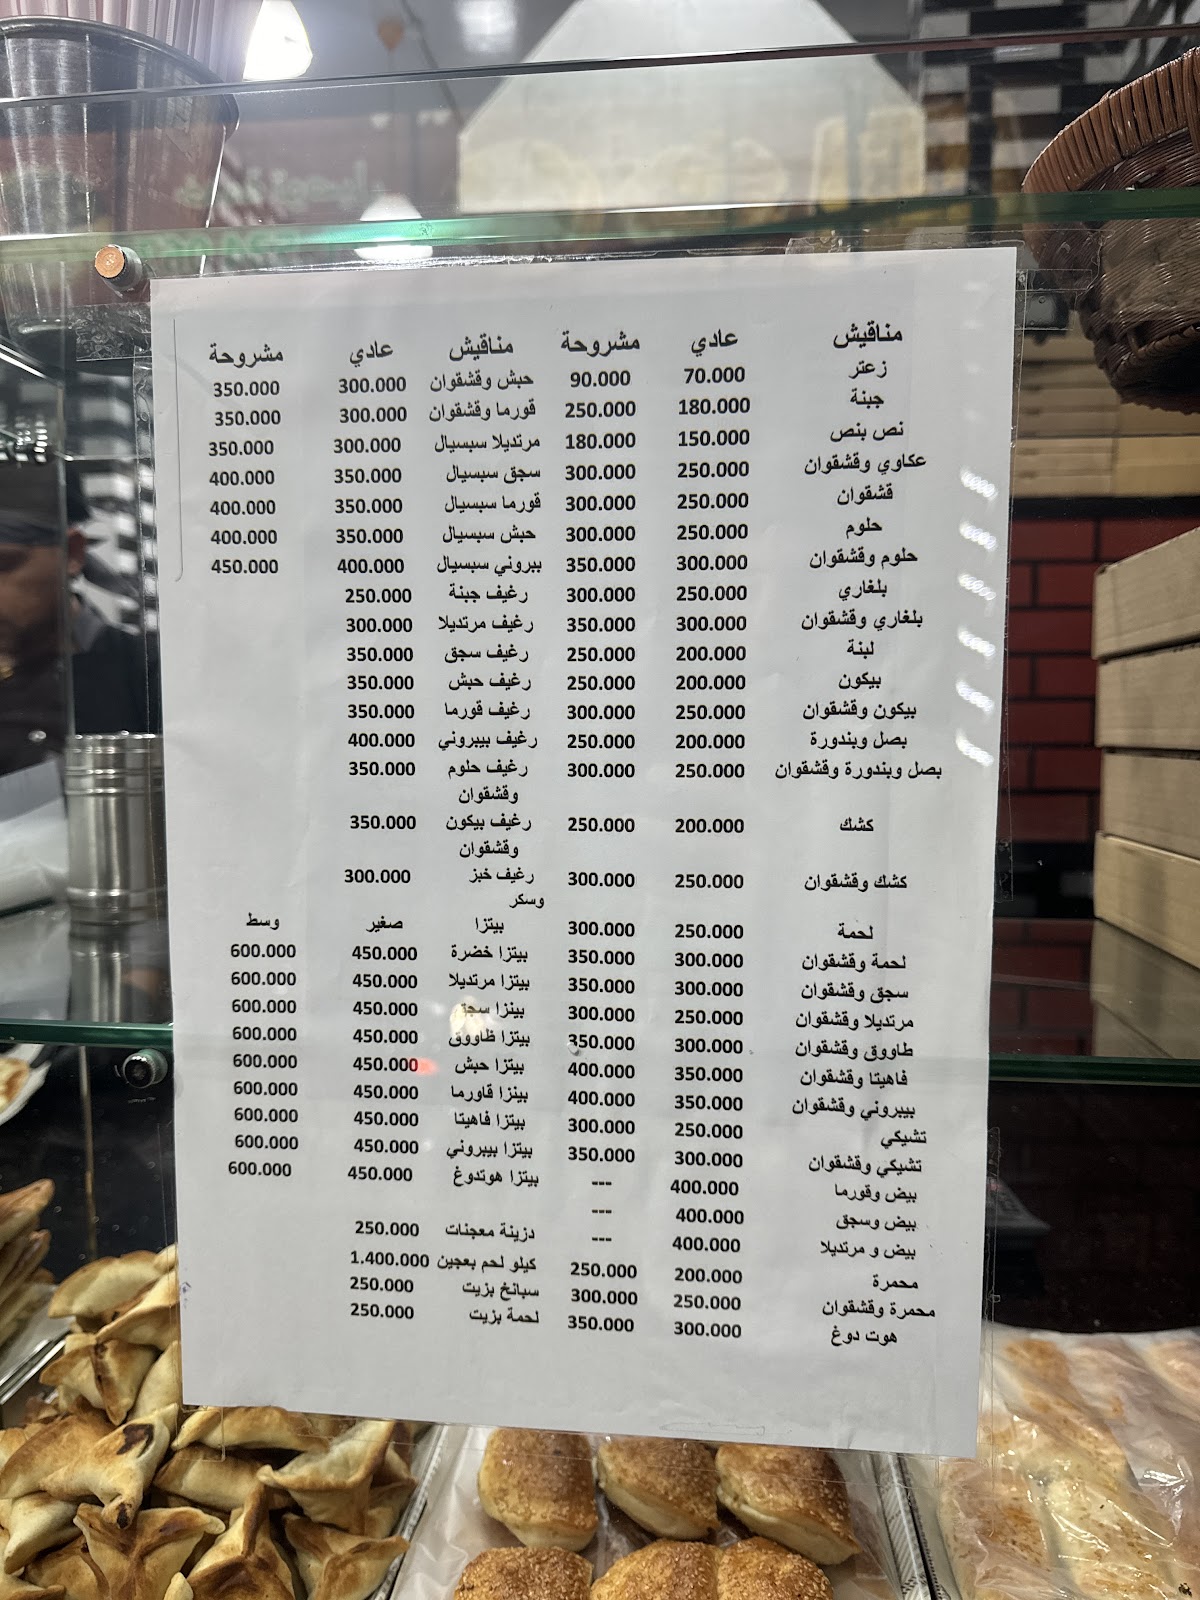 مناقيش عادي مشروحة
زعتر 70.000 90.000
جبنة 180.000 250.000
نص بنص 150.000 180.000
عكاوي وقشقوان 250.000 300.000
قشقوان 250.000 300.000
حلوم 250.000 300.000
حلوم وقشقوان 300.000 350.000
بلغاري 250.000 300.000
بلغاري وقشقوان 300.000 350.000
لبنة 200.000 250.000
بيكون 200.000 250.000
بيكون وقشقوان 250.000 300.000
بصل وبندورة 200.000 250.000
بصل وبندورة وقشقوان 250.000 300.000
كشك 200.000 250.000
كشك وقشقوان 250.000 300.000
لحمة 250.000 300.000
لحمة وقشقوان 300.000 350.000
سجق وقشقوان 300.000 350.000
مرتديلا وقشقوان 250.000 300.000
طاووق وقشقوان 300.000 350.000
فاهيتا وقشقوان 350.000 400.000
بيبروني وقشقوان 350.000 400.000
تشيكي 250.000 300.000
تشيكي وقشقوان 300.000 350.000
بيض وقورما 400.000 ---
بيض وسجق 400.000 ---
بيض و مرتديلا 400.000 ---
محمرة 200.000 250.000
محمرة وقشقوان 250.000 300.000
هوت دوغ 300.000 350.000
مناقيش عادي مشروحة
حبش وقشقوان 300.000 350.000
قورما وقشقوان 300.000 350.000
مرتديلا سبسيال 300.000 350.000
سجق سبسيال 350.000 400.000
قورما سبسيال 350.000 400.000
حبش سبسيال 350.000 400.000
ببروني سبسيال 400.000 450.000
رغيف جبنة 250.000
رغيف مرتديلا 300.000
رغيف سجق 350.000
رغيف حبش 350.000
رغيف قورما 350.000
رغيف بيبروني 400.000
رغيف حلوم 350.000
وقشقوان
رغيف بيكون 350.000
وقشقوان
رغيف خبز 300.000
وسكر
بيتزا صغير وسط
بيتزا خضرة 450.000 600.000
بيتزا مرتديلا 450.000 600.000
بيتزا سجق 450.000 600.000
بيتزا طاووق 450.000 600.000
بيتزا حبش 450.000 600.000
بيتزا قاورما 450.000 600.000
بيتزا فاهيتا 450.000 600.000
بيتزا بيبروني 450.000 600.000
بيتزا هوتدوغ 450.000 600.000
دزينة معجنات 250.000
كيلو لحم بعجين 1.400.000
سبانخ بزيت 250.000
لحمة بزيت 250.000